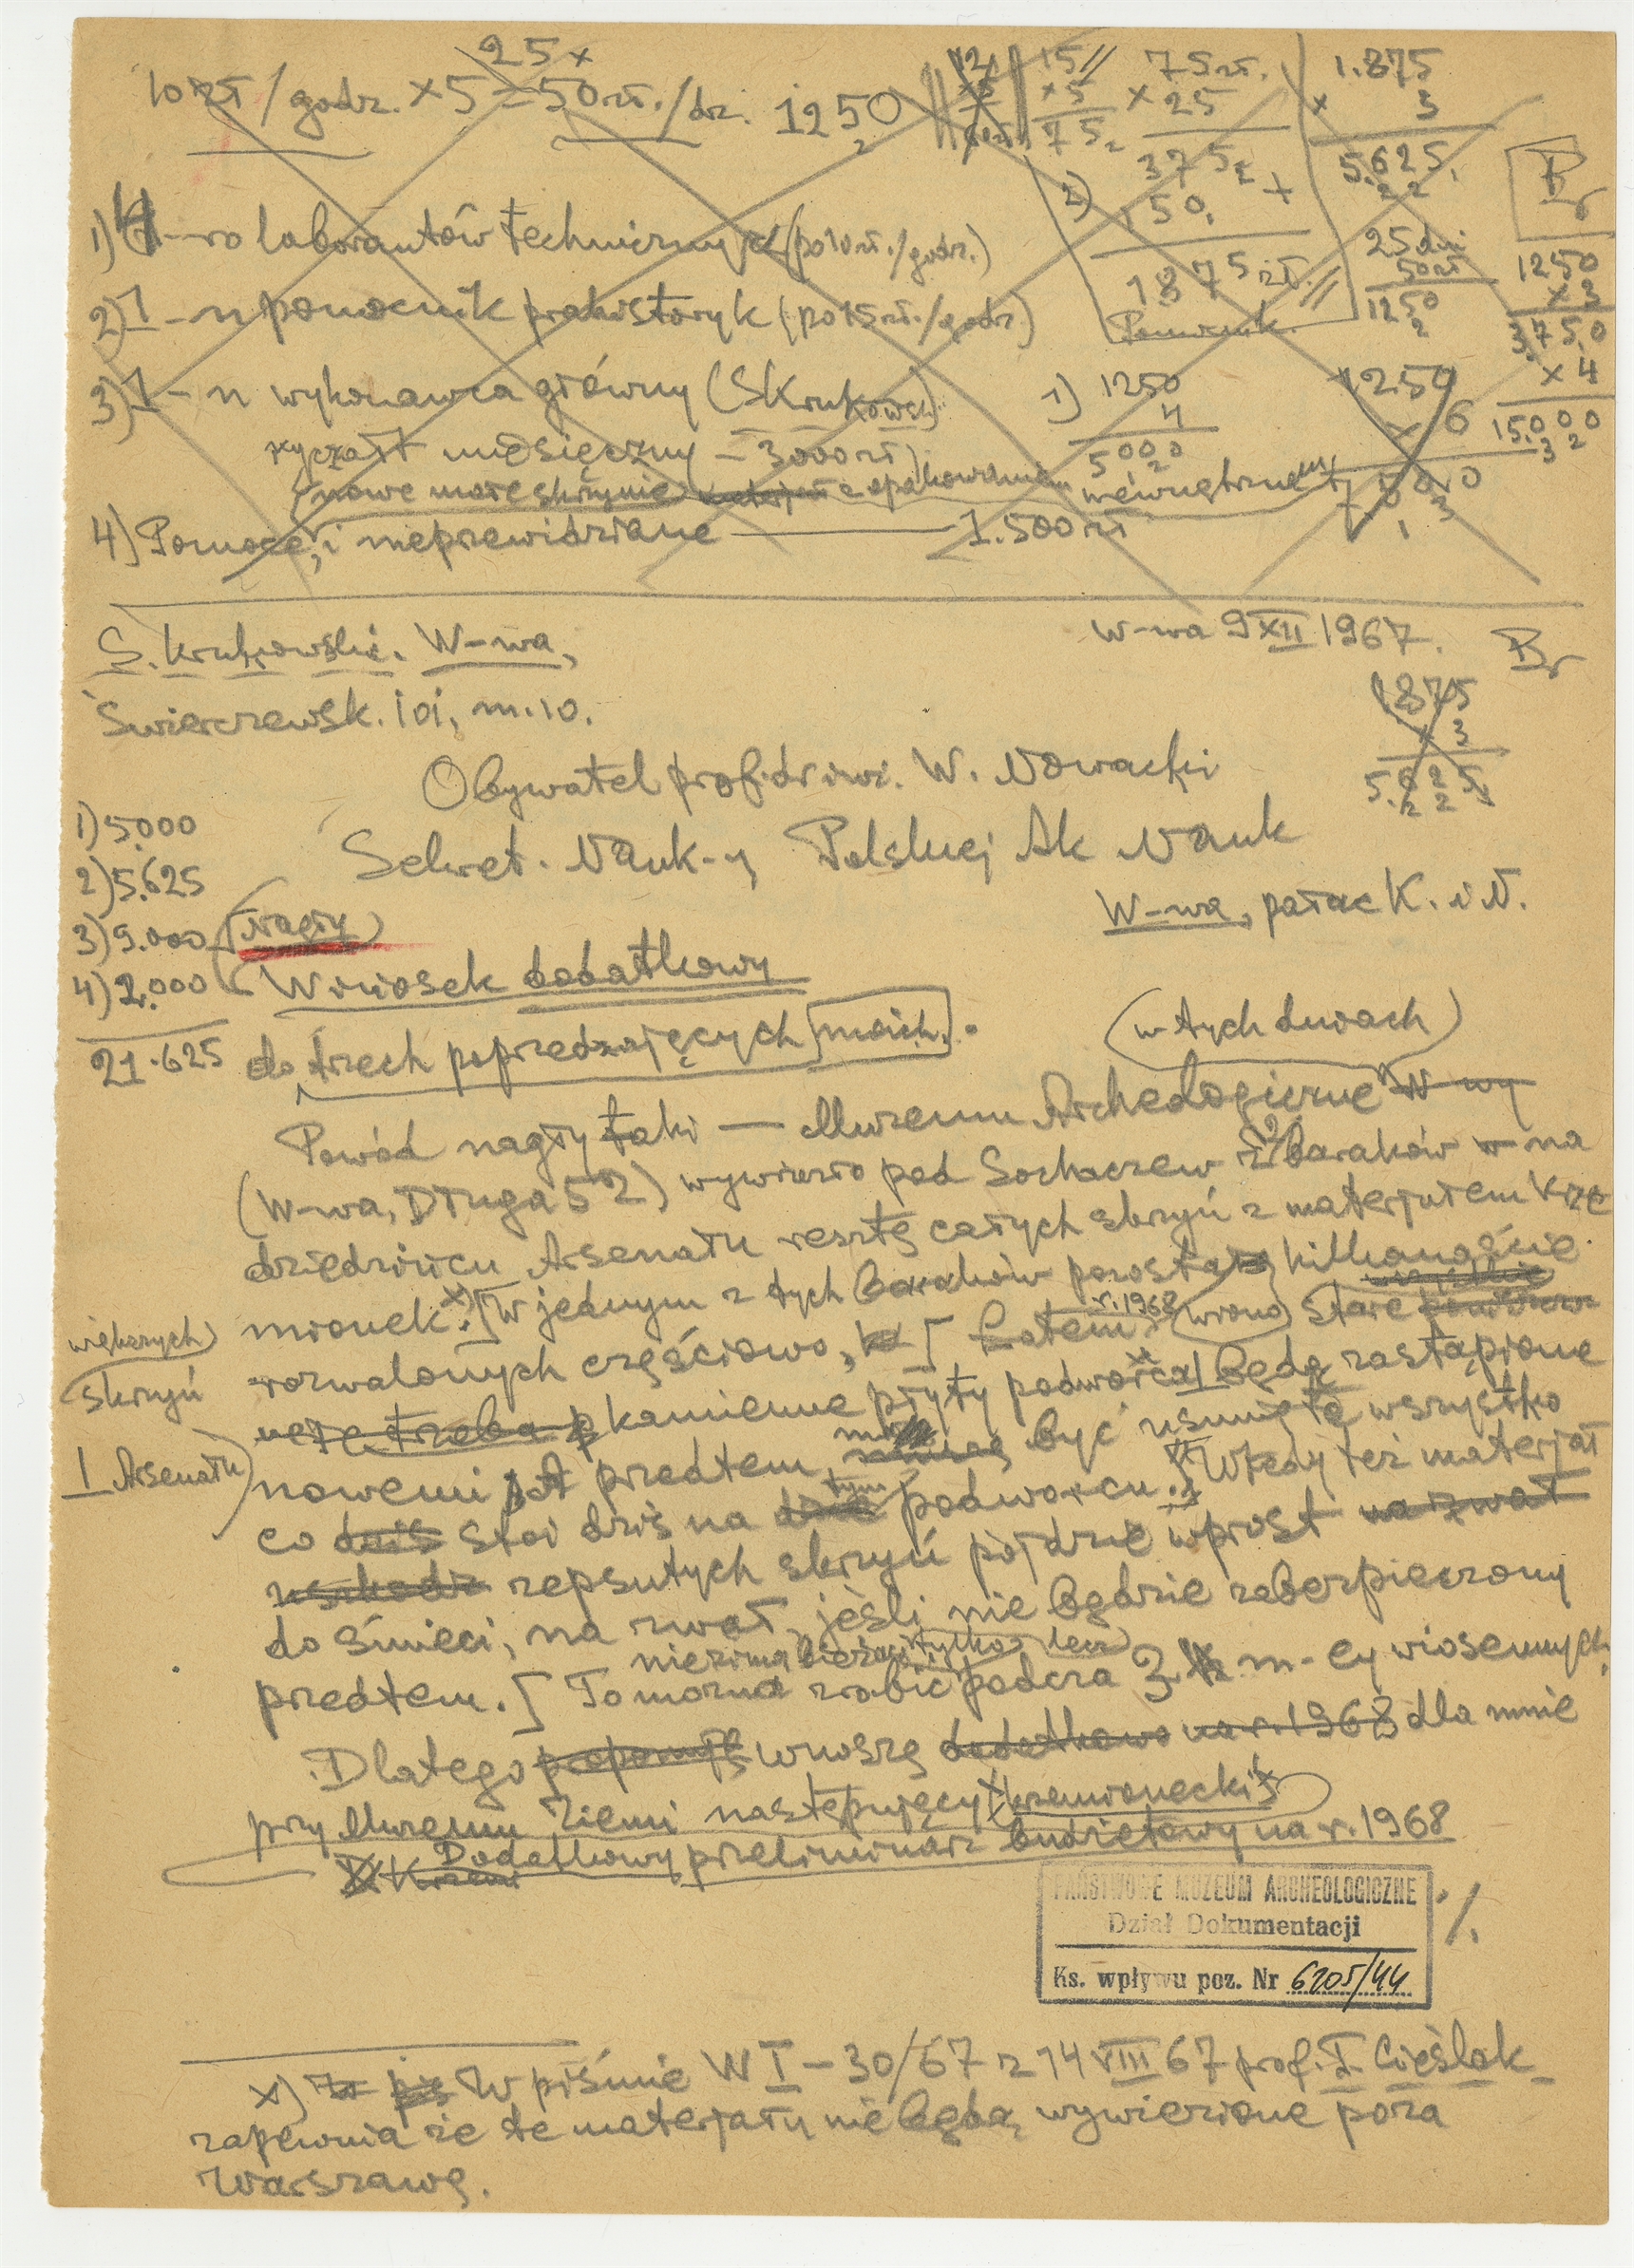 25 x
10 zł / godz. x 5 = 50 zł. / dz. 1250
15
x 5
75
75 zł.
x 25
375
150
1875 zł.
Pomocnik.
1.875
x 3
5.625
Br
25 dni
50 zł
1250
1250
x 3
3.750
x 4
15.000
1) 4-ro laborantów technicznych (po 10 zł./godz.)
2) 1-n pomocnik prahistoryk (po 15 zł./godz.)
3) 1-n wykonawca główny (SKrukowski)
ryczałt miesięczny – 3000 zł)
1) 1250
4
5000
1250
x 6
7.500
(nowe małe skrzynie z opakowaniem wewnętrznem)
4) Pomoce, i nieprzewidziane — 1.500 zł
S. Krukowski. W-wa,
Świerczewsk. 101, m. 10.
W-wa 9 XII 1967.
Br
1875
x 3
5.625
Obywatel prof. dr inż. W. Nowacki
Sekret. Nauk-y Polskiej Ak Nauk
W-wa, pałac K. i N.
1) 5.000
2) 5.625
3) 9.000
4) 2.000
21.625
(Nagły)
Wniosek dodatkowy
do trzech poprzedzających moich.
(w tych dniach)
Powód nagły taki — Muzeum Archeologiczne w wy
(W-wa, Długa 52) wywiozło pod Sochaczew z 2 baraków w na
dziedzińcu Arsenału resztę całych skrzyń z materjałem Krze
mionek. x) [W jednym z tych baraków pozostało kilkanaście
większych skrzyń
rozwalonych częściowo, [ Latem r. 1968 (wrono) stare
kamienne płyty podwórca będą zastąpione
I Arsenału)
nowemi A przedtem, musi być usunięte wszystko
co dziś stoi dziś na tym podworcu. [Wtedy też materjał
zepsutych skrzyń pójdzie wprost na zwał
do śmieci, na zwał, jeśli nie będzie zabezpieczony
przedtem. [ To można zrobić podcza 3 m-cy wiosennych.
nie zimą bieżącą tylko lecz
Dlatego proponuję wnoszę dodatkowo na r. 1968 dla mnie
przy Muzeum Ziemi następujący krzemionecki
Dodatkowy preliminarz budżetowy na r. 1968
PAŃSTWOWE MUZEUM ARCHEOLOGICZNE
Dział Dokumentacji
Ks. wpływu poz. Nr 6205/44
./.
x) W piśmie W I – 30/67 z 14 VIII 67 prof. T. Cieślak
zapewnia że te materjały nie będą wywiezione poza
Warszawę.